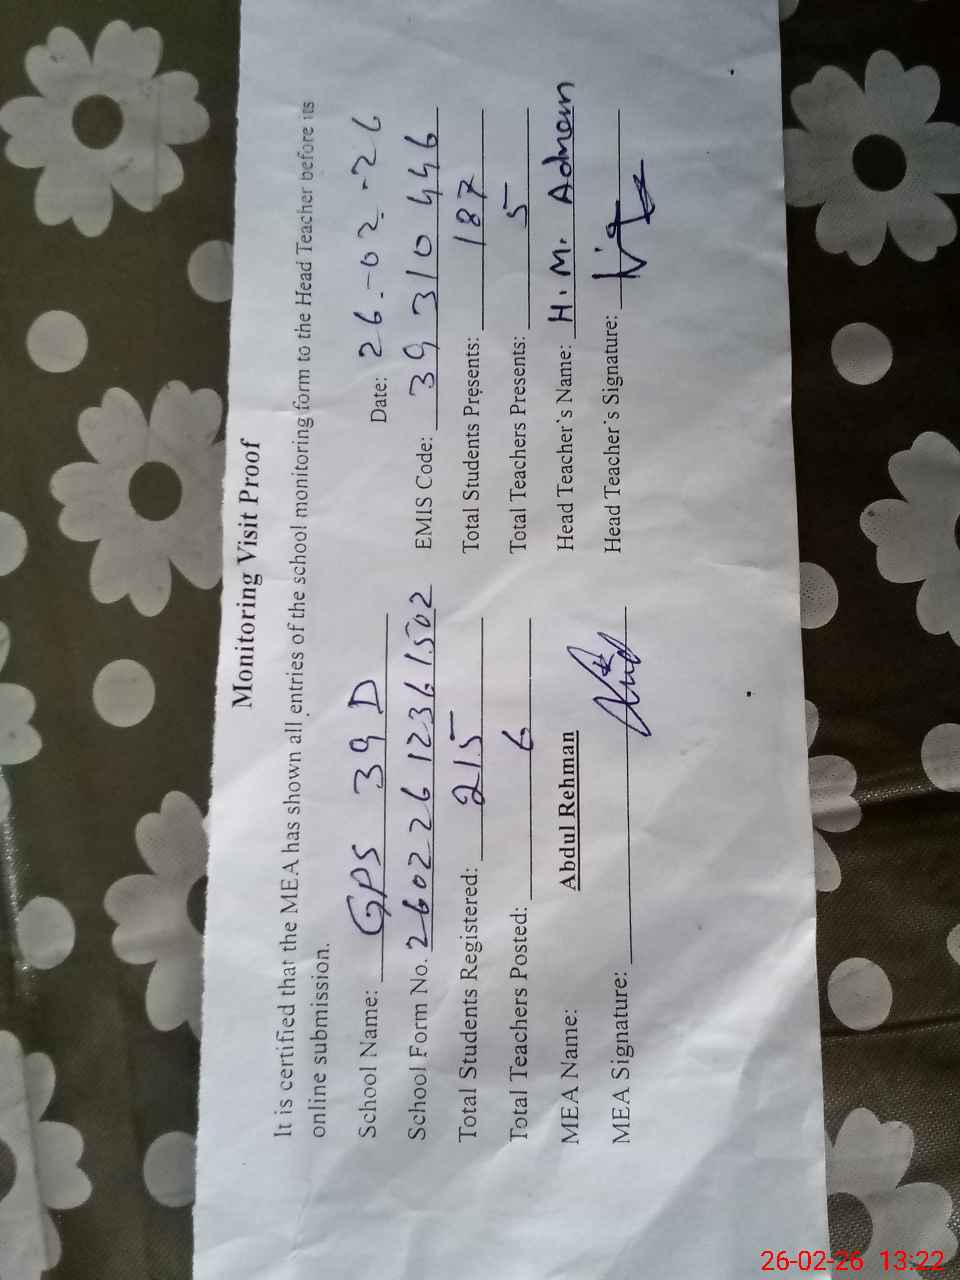 Monitoring Visit Proof
It is certified that the MEA has shown all entries of the school monitoring form to the Head Teacher before its
online submission.
Date: 26-02-26
School Name: GPS 39 D
EMIS Code: 39310446
School Form No. 26022612361502
Total Students Presents: 187
Total Students Registered: 215
Total Teachers Presents: 5
Total Teachers Posted: 6
Head Teacher's Name: H.M. Adnan
MEA Name: Abdul Rehman
Head Teacher's Signature:
MEA Signature:
26-02-26 13:22